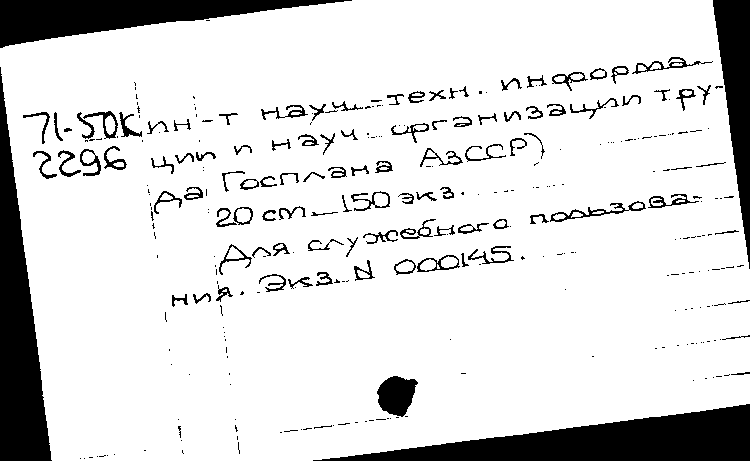 71-50К ин-т науч.-техн. информа-
2296 ции и науч. организации тру-
да Госплана АзССР)
20 cm. 150 экз.
Для служебного пользова-
ния. Экз. N 000145.